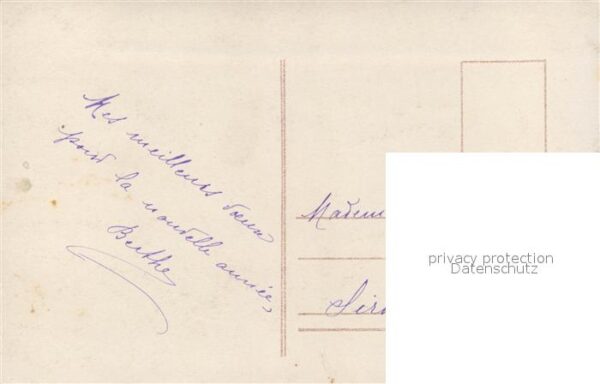 Mes meilleurs vœux
pour la nouvelle année,
Berthe
Madem
privacy protection
Datenschutz